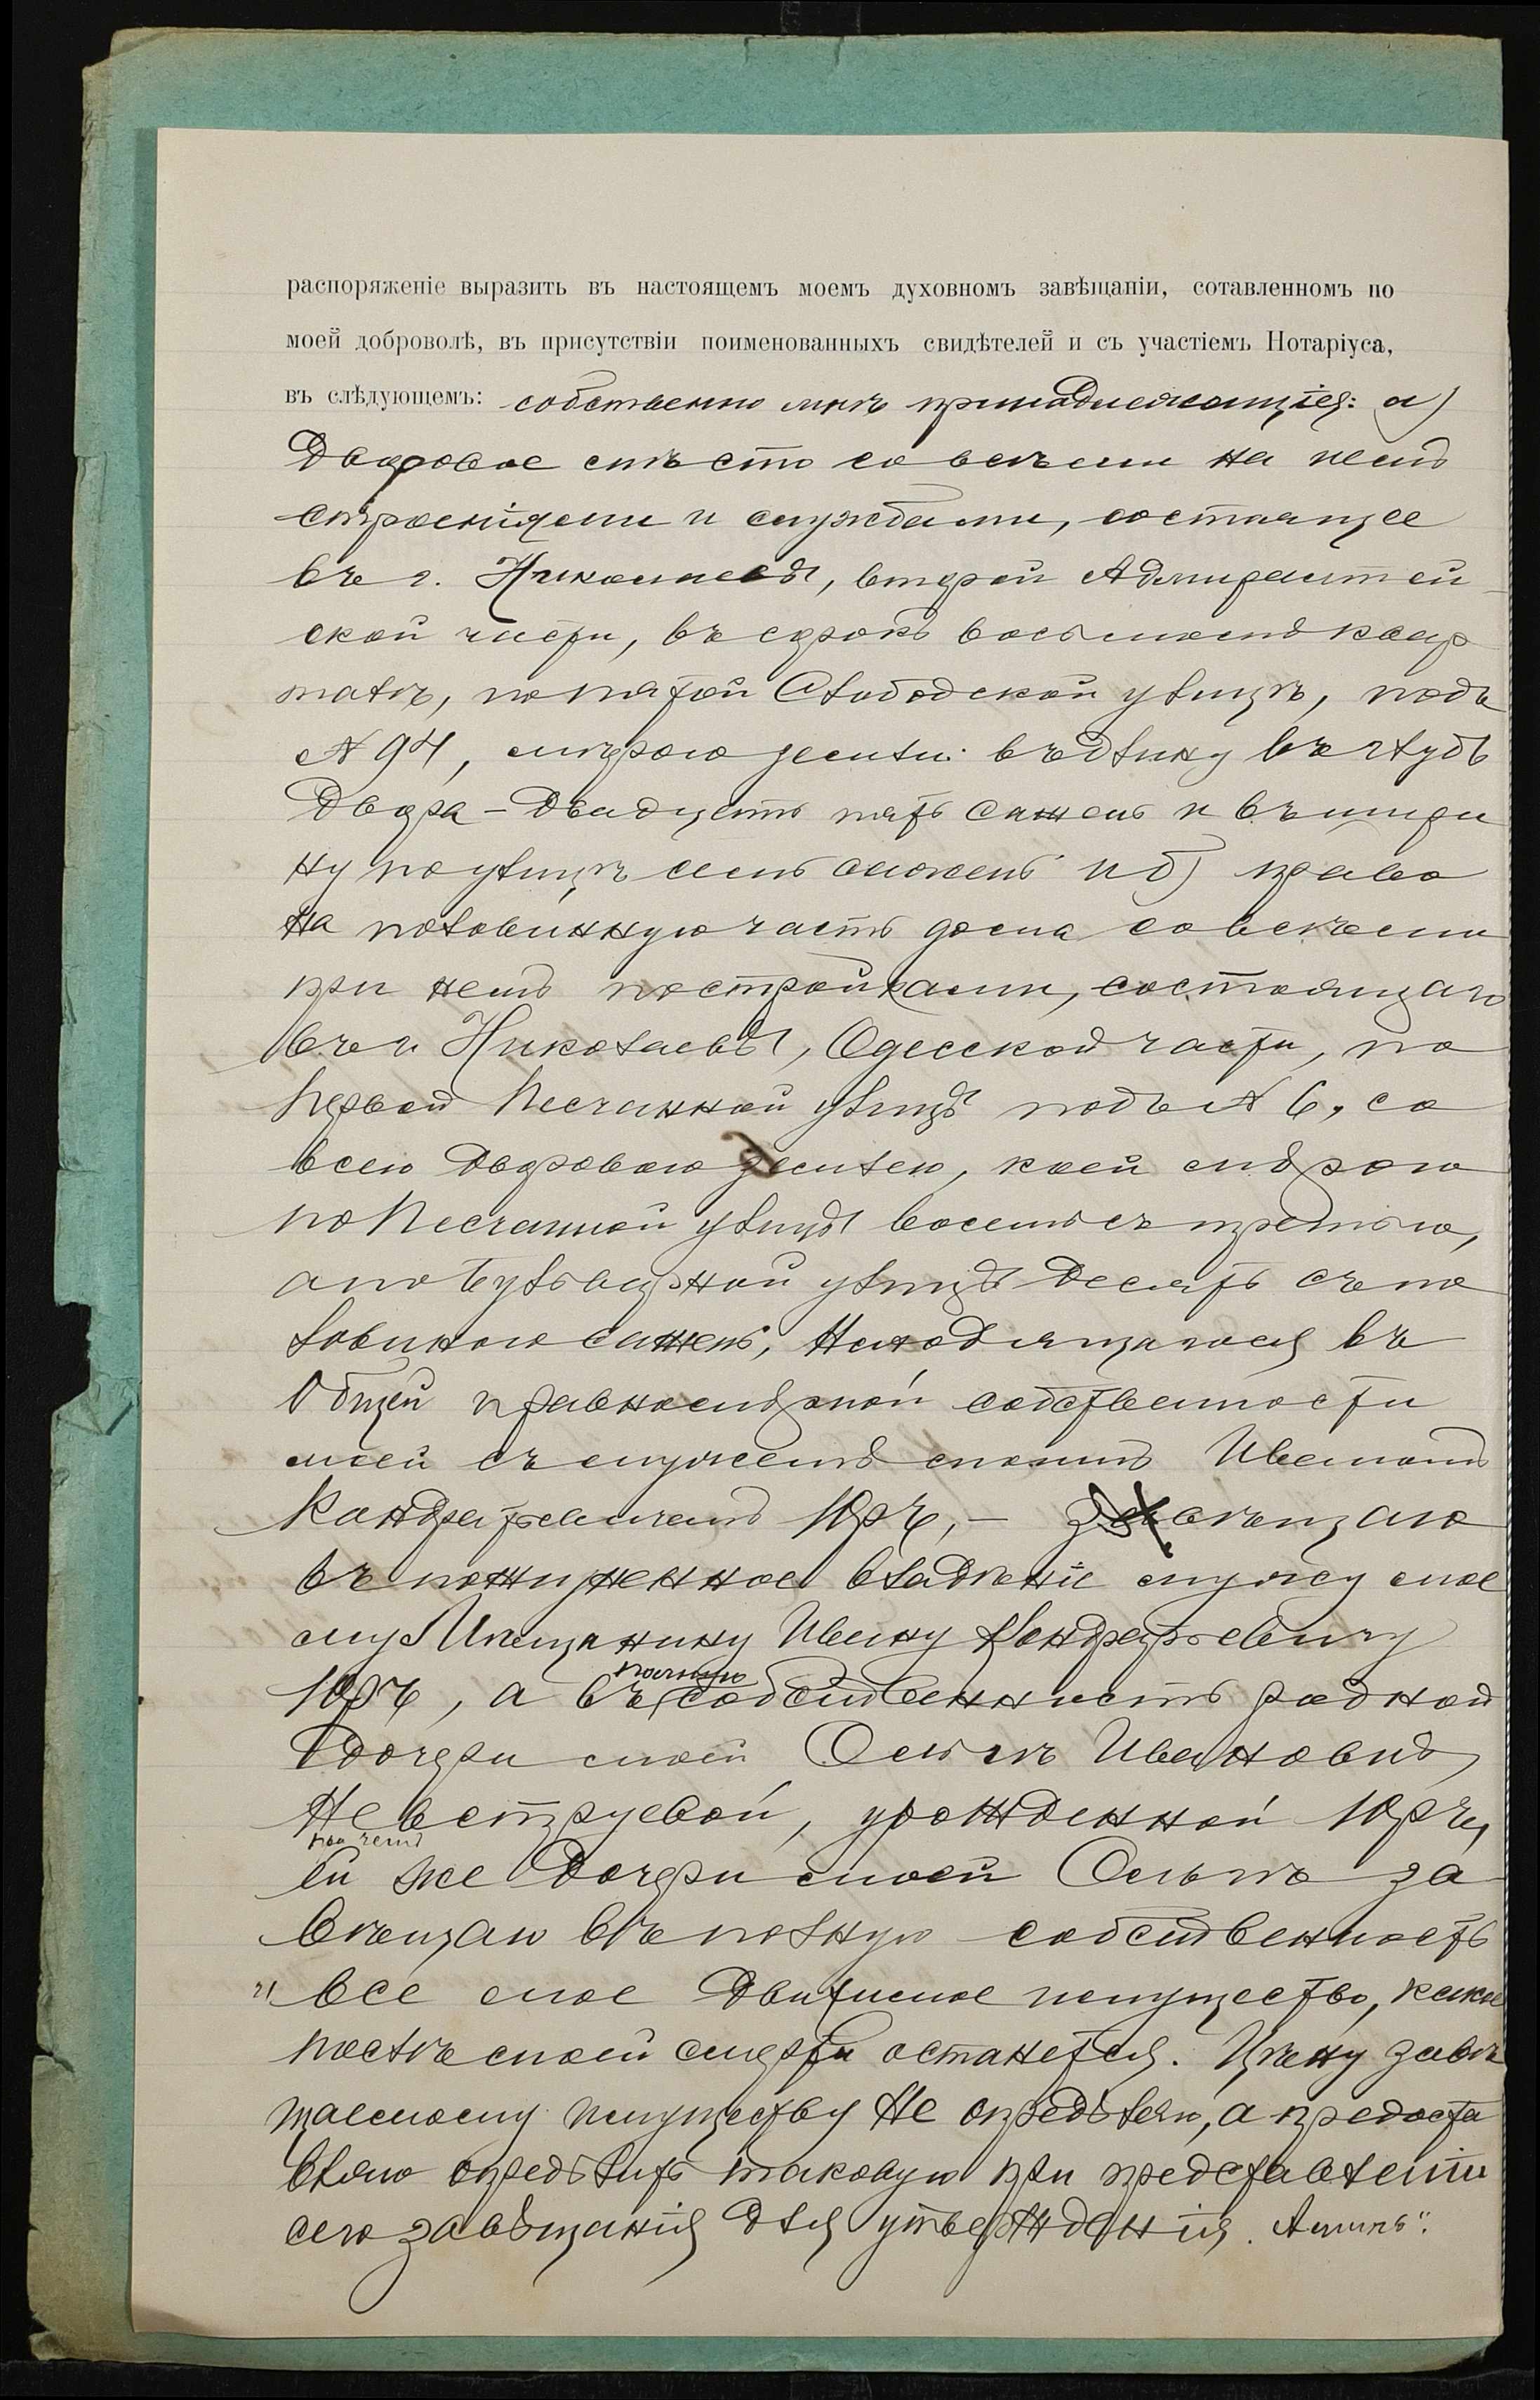 распоряженіе выразить въ настоящемъ моемъ духовномъ завѣщаніи, сотавленномъ по
моей доброволѣ, въ присутствіи поименованныхъ свидѣтелей и съ участіемъ Нотаріуса,
въ слѣдующемъ: собственно мнѣ принадлежащія: а)
Дворовое мѣсто со всѣми на немъ
строеніями и службами, состоящее
въ г. Николаевѣ, второй Адмиралтей
ской части, въ сорокъ восьмомъ квар
талѣ, по пятой Слободской улицѣ, подъ
№ 94, мѣрою земли: въ длину въ глубь
Двора - Двадцать пять сажень и въ шири
ну по улицѣ семь сажень и б) право
на половинную часть дома со всѣми
при немъ постройками, состоящаго
въ г. Николаевѣ, Одесской части, по
Первой Песчанной улицѣ подъ № 6, со
всею Дворовою землею, коей мѣрою
по Песчанной улицѣ восемь съ третью,
а по Бульварной улицѣ Десять съ по
ловиною сажень, Находящагося въ
Общей и равномѣрной собственности
моей съ мужемъ моимъ Иваномъ
Кондратьевичемъ Юръ, - завѣщаю
въ пожизненное владѣніе мужу мое
му Мѣщанину Ивану Кондратьевичу
Юръ, а въ полную собственность родной
Дочери моей Ольгѣ Ивановнѣ
Невструевой, урожденной Юръ,
ей же Дочери моей Ольгѣ за
вѣщаю въ полную собственность
и все мое Движимое имущество, какое
послѣ моей смерти останется. Цѣну завѣ
щаемому имуществу Не опредѣляю, а предоста
вляю опредѣлить таковую при представленіи
сего завѣщанія Для утвержденія. Аминь".